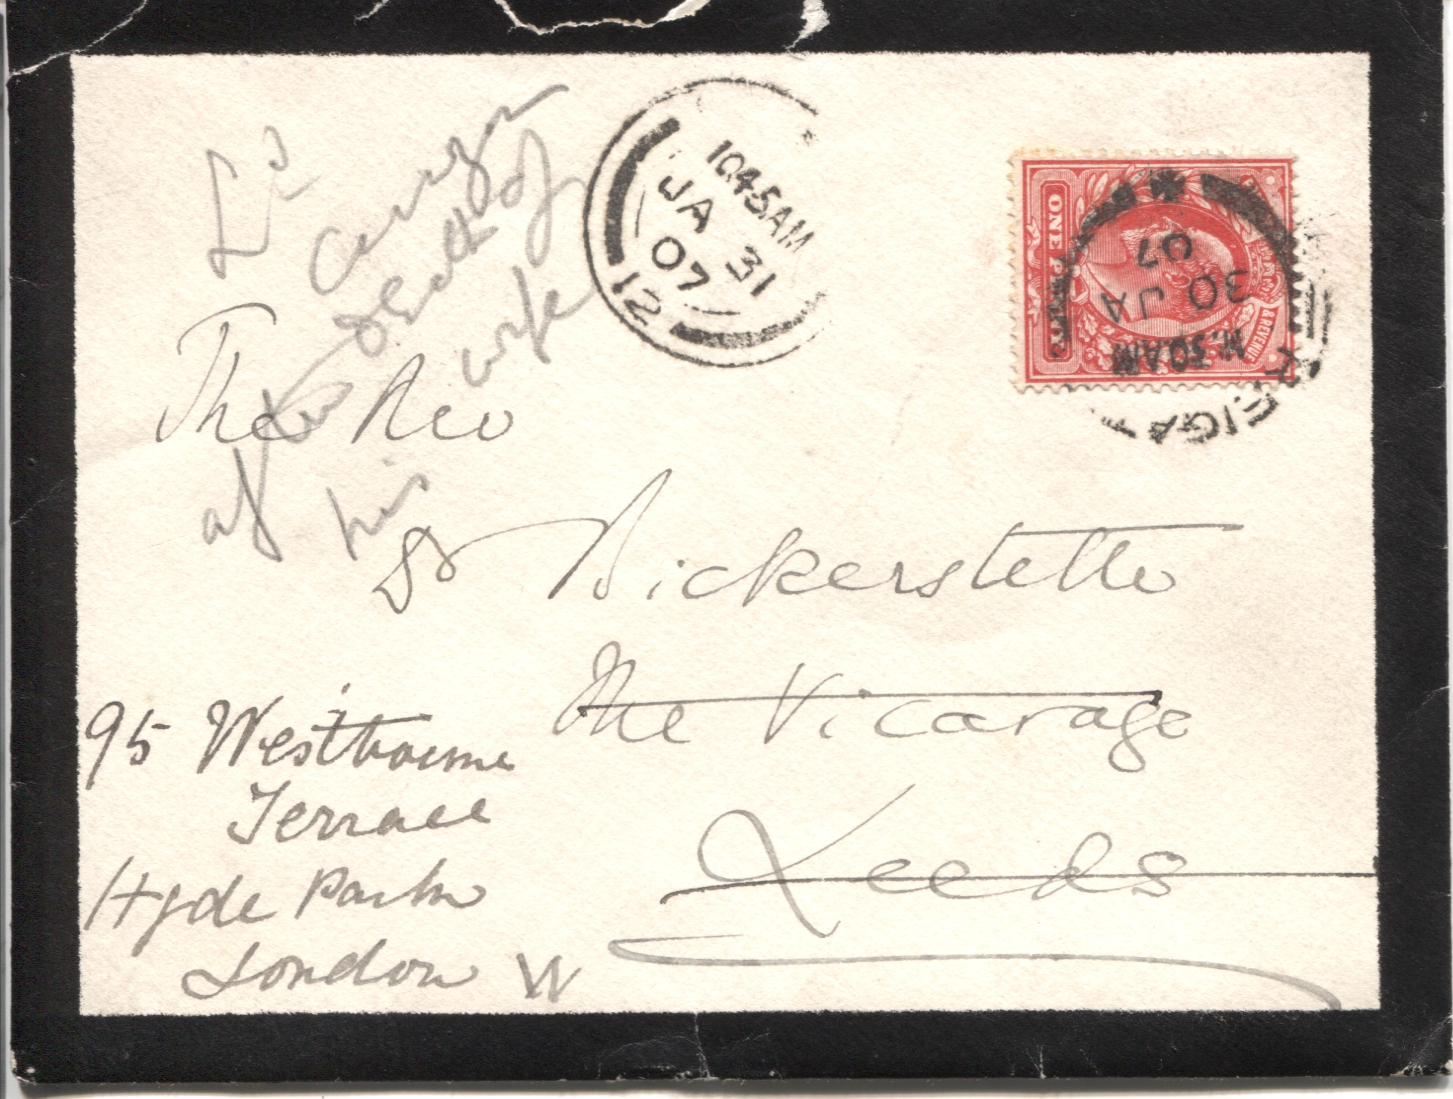 Ld Curzon
after death of
his wife
The Rev
Dr Bickersteth
The Vicarage
Leeds
95 Westbourne
Terrace
Hyde Park
London W
10.45AM
JA 31
07
12
ONE PENNY
& REVENUE
REIGATE
11.30AM
30 JA
07